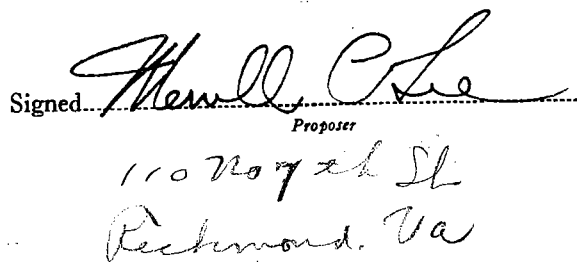 Signed Merrill C Lee
Proposer
110 No 7th St
Richmond. Va